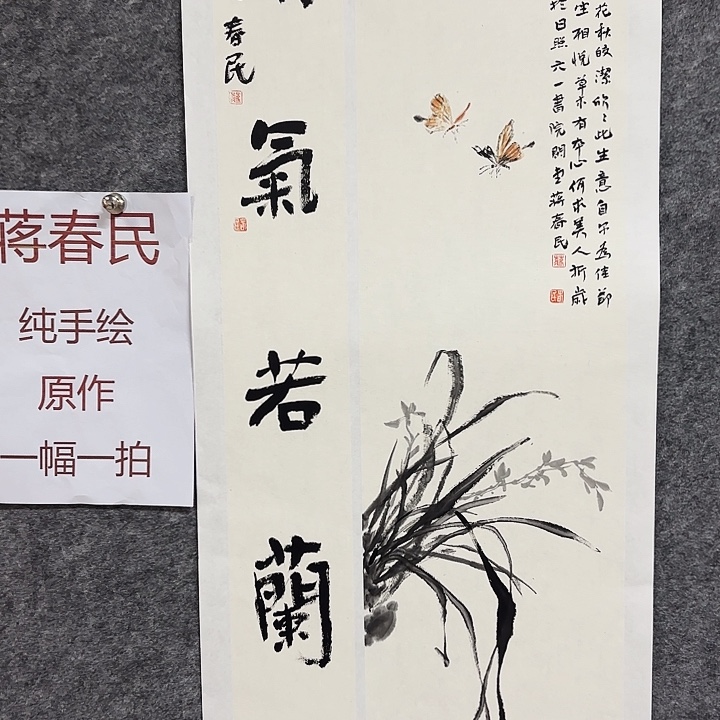 蒋春民
纯手绘
原作
一幅一拍
花秋皎潔欣々此生意自尔為佳節
生相悦草木有本心何求美人折歲
於日照六一書院開雲蒋春民
氣若蘭
春民